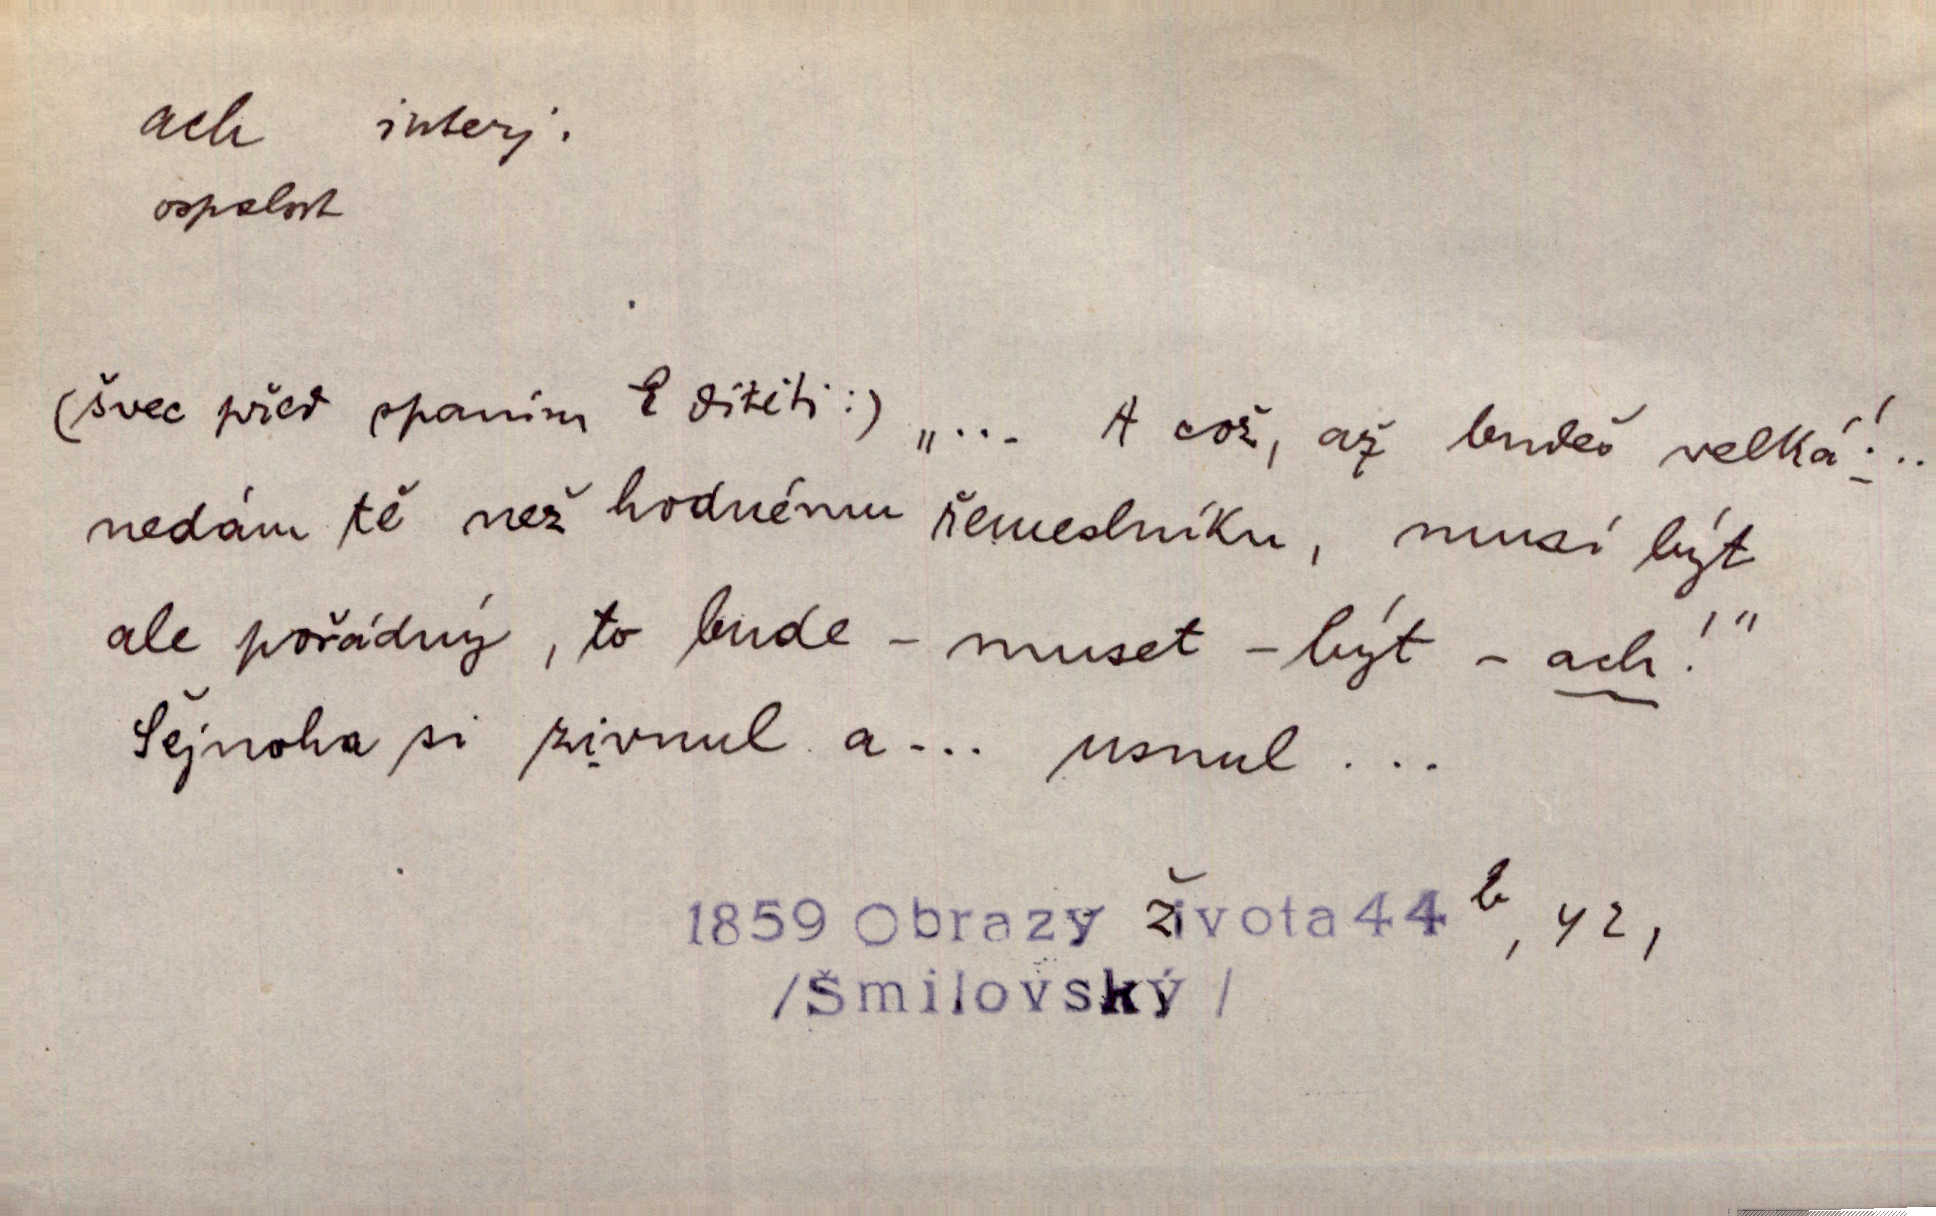 ach interj.
ospalost
(švec před spaním k dítěti:) „... A což, až budeš velká!..
nedám tě než hodnému řemeslníku, musí být
ale pořádný, to bude – muset – být – ach!"
Šejnoha si zivnul a... usnul...
1859 Obrazy života 44 b, 42,
/Šmilovský/